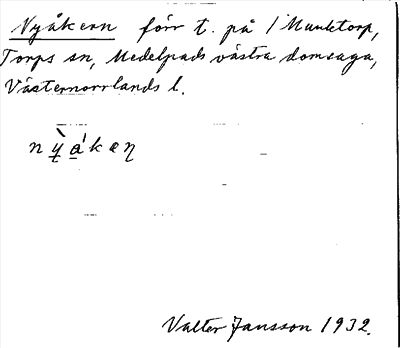 Nyåkern förr t. på 1 Munktorp,
Torps sn, Medelpads västra domsaga,
Västernorrlands l.
nỳ̠a̠ ́kæn
Valter Jansson 1932.